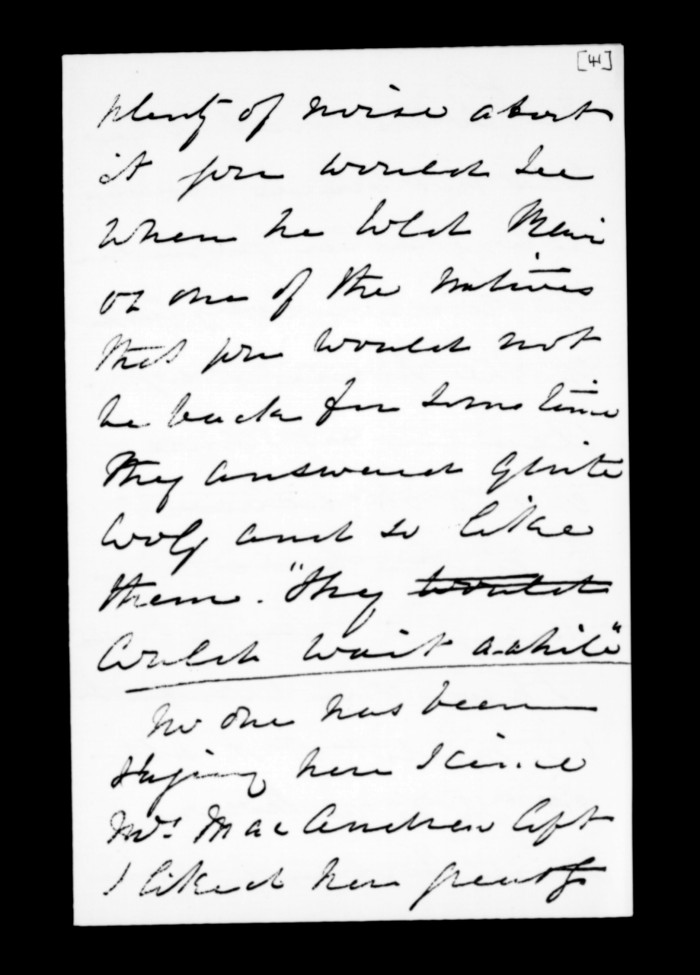 [41]
plenty of noise about
it you would see
when he told
or one of the natives
that you would not
be back for some time
they answered quite
cooly and so like
them. "They would
could wait awhile"
No one has been
staying here since
Mrs MacAndrew left
I liked her greatly